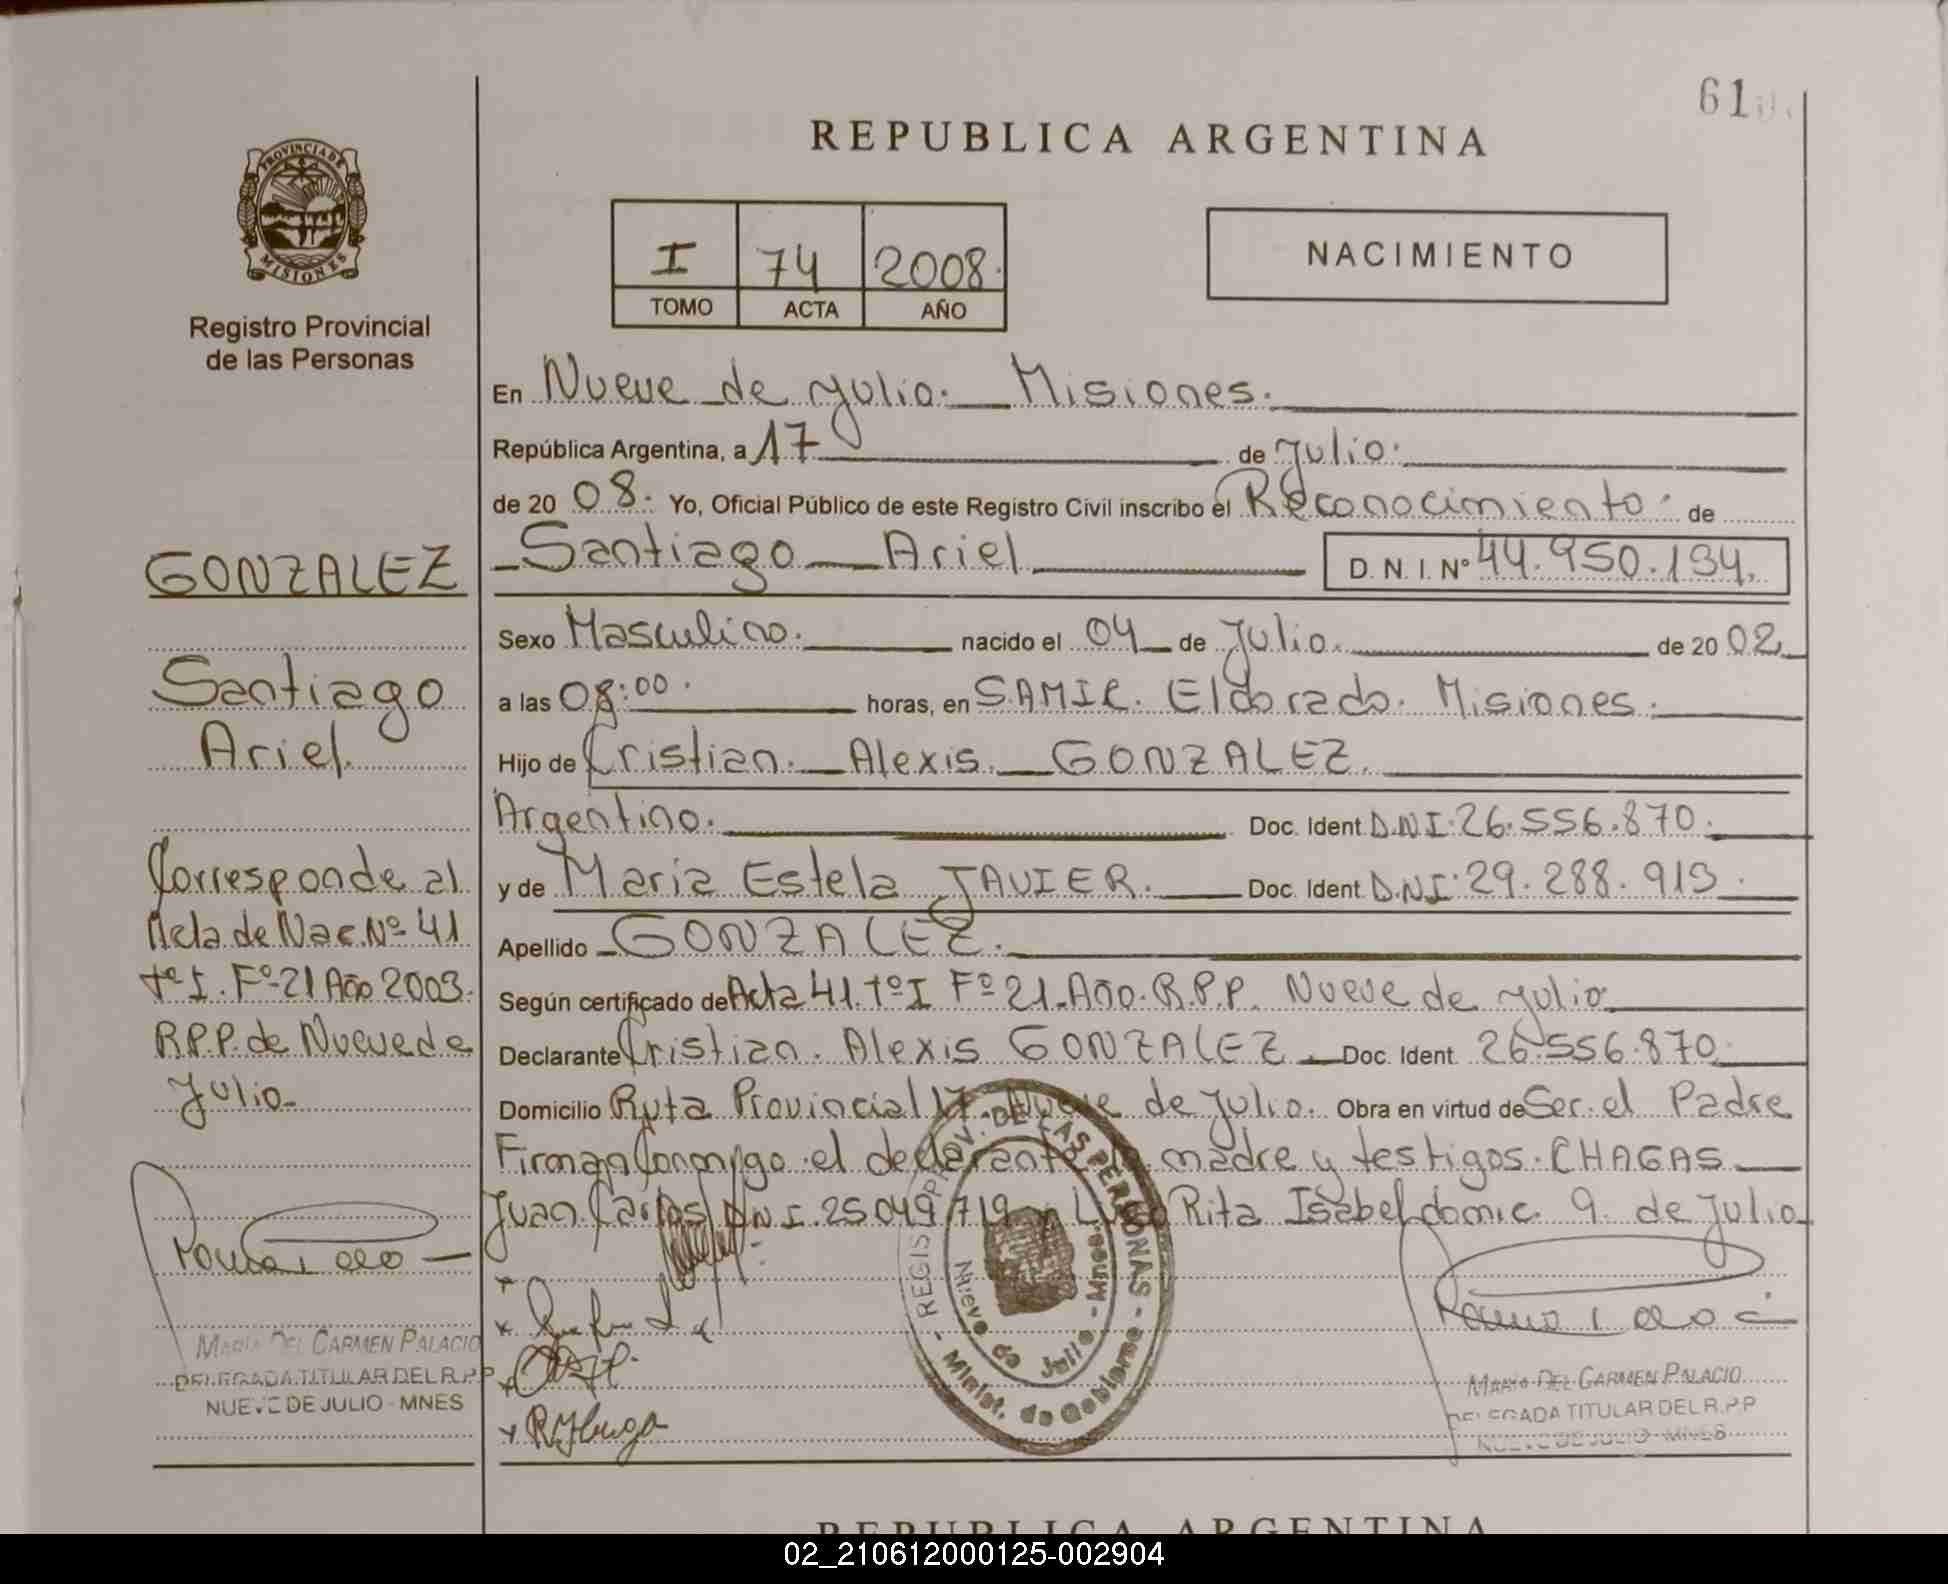 61
REPUBLICA ARGENTINA
PROVINCIA DE
MISIONES
Registro Provincial
de las Personas
I 74 2008.
TOMO ACTA AÑO
NACIMIENTO
En Nueve de Julio. Misiones.
República Argentina, a 17 de Julio.
de 20 08. Yo, Oficial Público de este Registro Civil inscribo el Reconocimiento de
Santiago Ariel D.N.I. Nº 44.950.194.
Sexo Masculino. nacido el 04 de Julio. de 20 02
a las 08:00. horas, en S.A.M.I.C. Eldorado. Misiones.
Hijo de Cristian. Alexis. GONZALEZ.
Argentino. Doc. Ident. D.N.I. 26.556.870.
y de Maria Estela JAVIER. Doc. Ident. D.N.I. 29.288.913.
Apellido GONZALEZ.
Según certificado de Acta 41. Tº I Fº 21. Año. R.P.P. Nueve de Julio
Declarante Cristian. Alexis GONZALEZ. Doc. Ident. 26.556.870.
Domicilio Ruta Provincial 17. Nueve de Julio. Obra en virtud de Ser el Padre
Firman Conmigo el declarante la madre y testigos. CHAGAS
Juan Carlos DNI. 25049719 y Rita Isabel domic. 9. de Julio
GONZALEZ
Santiago
Ariel.
Corresponde al
Acta de Nac. Nº 41
Tº I. Fº 21 Año 2003.
R.P.P. de Nueve de
Julio.
MARIA DEL CARMEN PALACIO
DELEGADA TITULAR DEL R.P.P
NUEVE DE JULIO - MNES
REGIS. PROV. DE LAS PERSONAS
Nueve de Julio - Mnes.
Minist. de Gobierno
MARIA DEL CARMEN PALACIO
DELEGADA TITULAR DEL R.P.P
NUEVE DE JULIO - MNES
REPUBLICA ARGENTINA
02_210612000125-002904